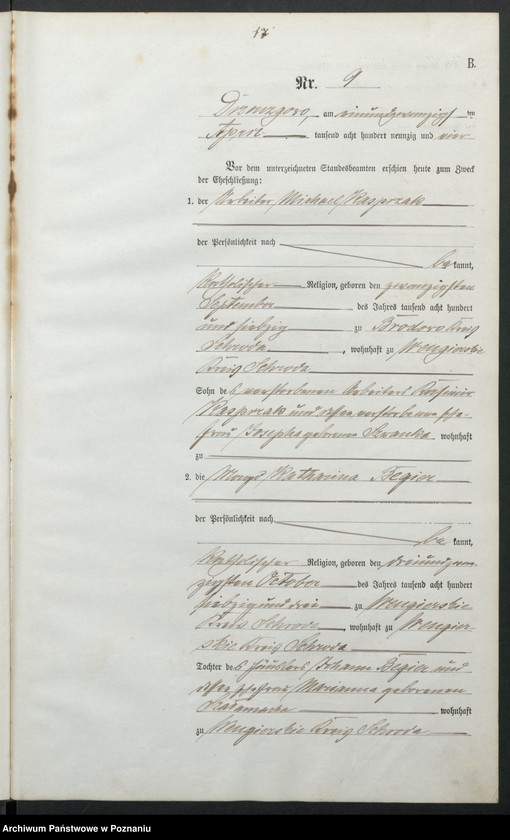 17
B.
Nr. 9
am einundzwanzigsten
April tausend acht hundert neunzig und vier
Vor dem unterzeichneten Standesbeamten erschien heute zum Zweck
der Eheschließung:
1. der Arbeiter Michael Kasprzak
der Persönlichkeit nach
be kannt,
katholischer Religion, geboren den zwanzigsten
September des Jahres tausend acht hundert
und siebzig zu Brodowo Kreis
Schroda, wohnhaft zu Wengierskie
Kreis Schroda
Sohn des verstorbenen Arbeiters Kasimir
Kasprzak und dessen verstorbener Ehe-
frau Josepha geborene wohnhaft
zu
2. die Katharina Begier
der Persönlichkeit nach
be kannt,
katholischer Religion, geboren den dreiundzwan-
zigsten October des Jahres tausend acht hundert
siebzig und drei zu Wengierskie
Kreis Schroda, wohnhaft zu Wengier-
skie Kreis Schroda
Tochter des Häuslers Johann Begier und
dessen Ehefrau Marianna geborenen
wohnhaft
zu Wengierskie Kreis Schroda
Archiwum Państwowe w Poznaniu
szukajwarchiwach.gov.pl